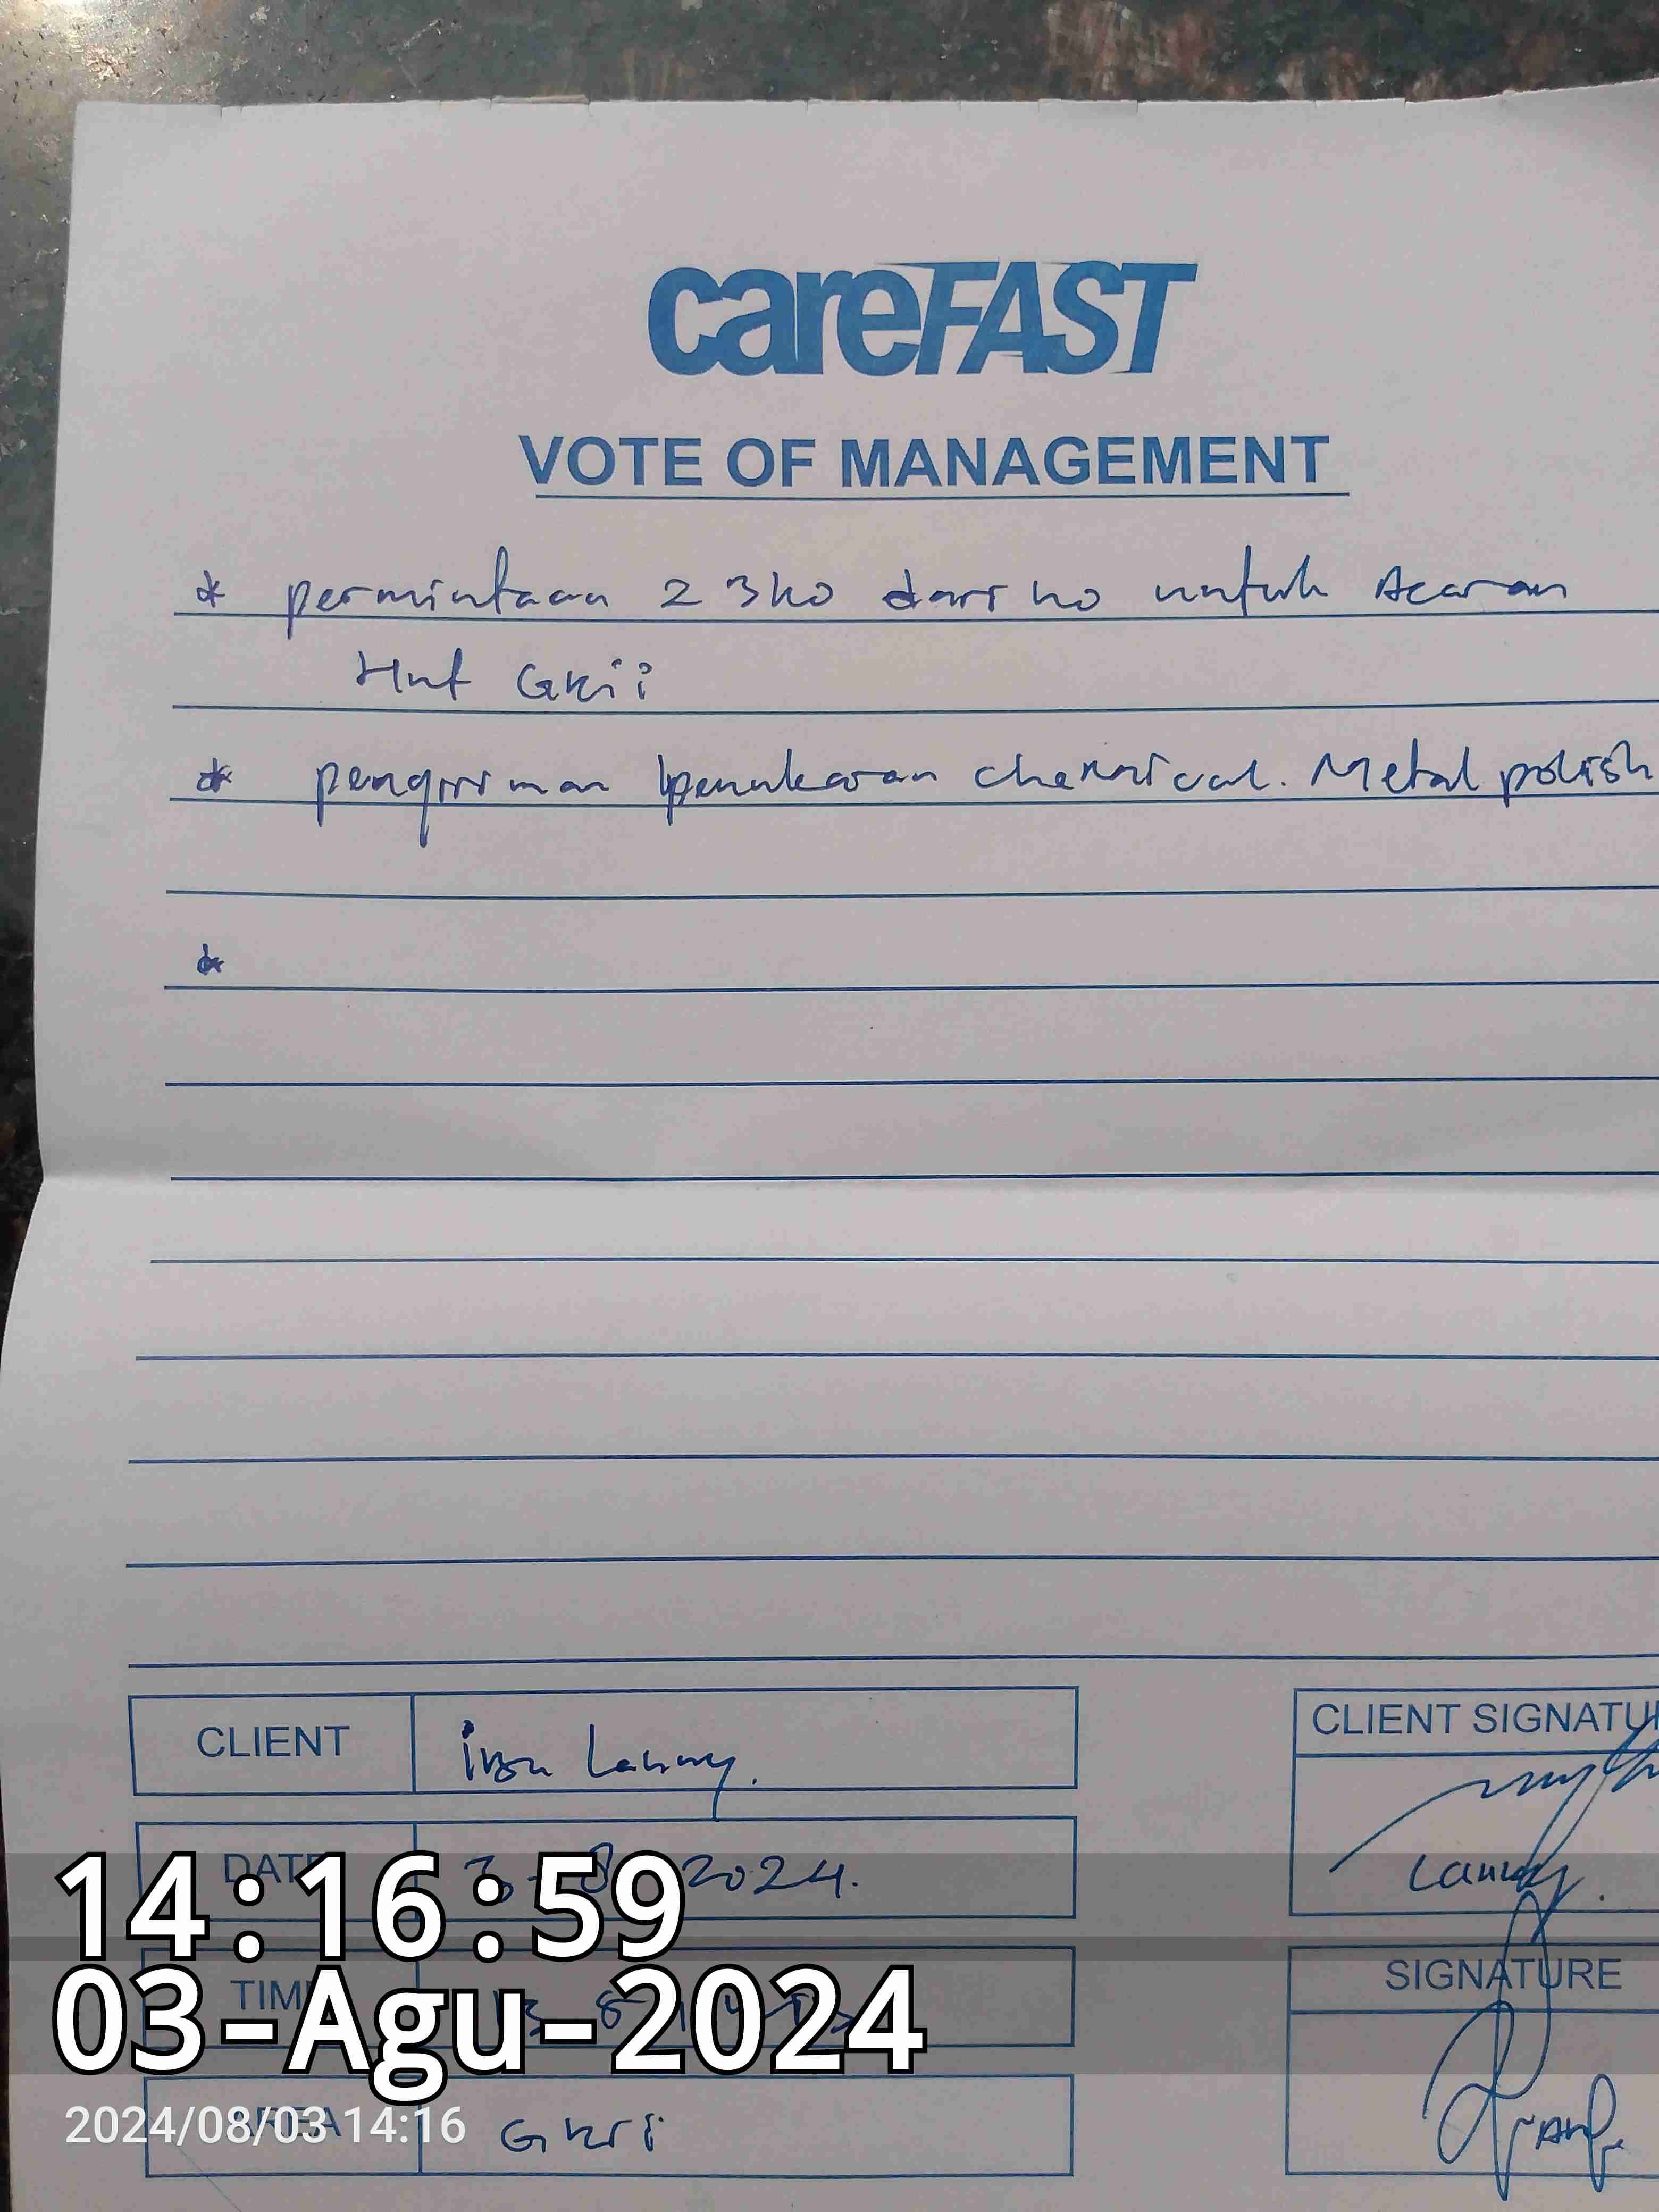 careFAST
VOTE OF MANAGEMENT
* permintaan 2 3 ko dari ho untuk Acaran
Hut Gkii
* pengiriman penukaran chemical. Metal polish
*
CLIENT
CLIENT SIGNATU
Lanny.
DATE
3 - 8 2024.
Lanny.
14:16:59
TIM
SIGNATURE
03-Agu-2024
AREA
Gkii
2024/08/03 14:16